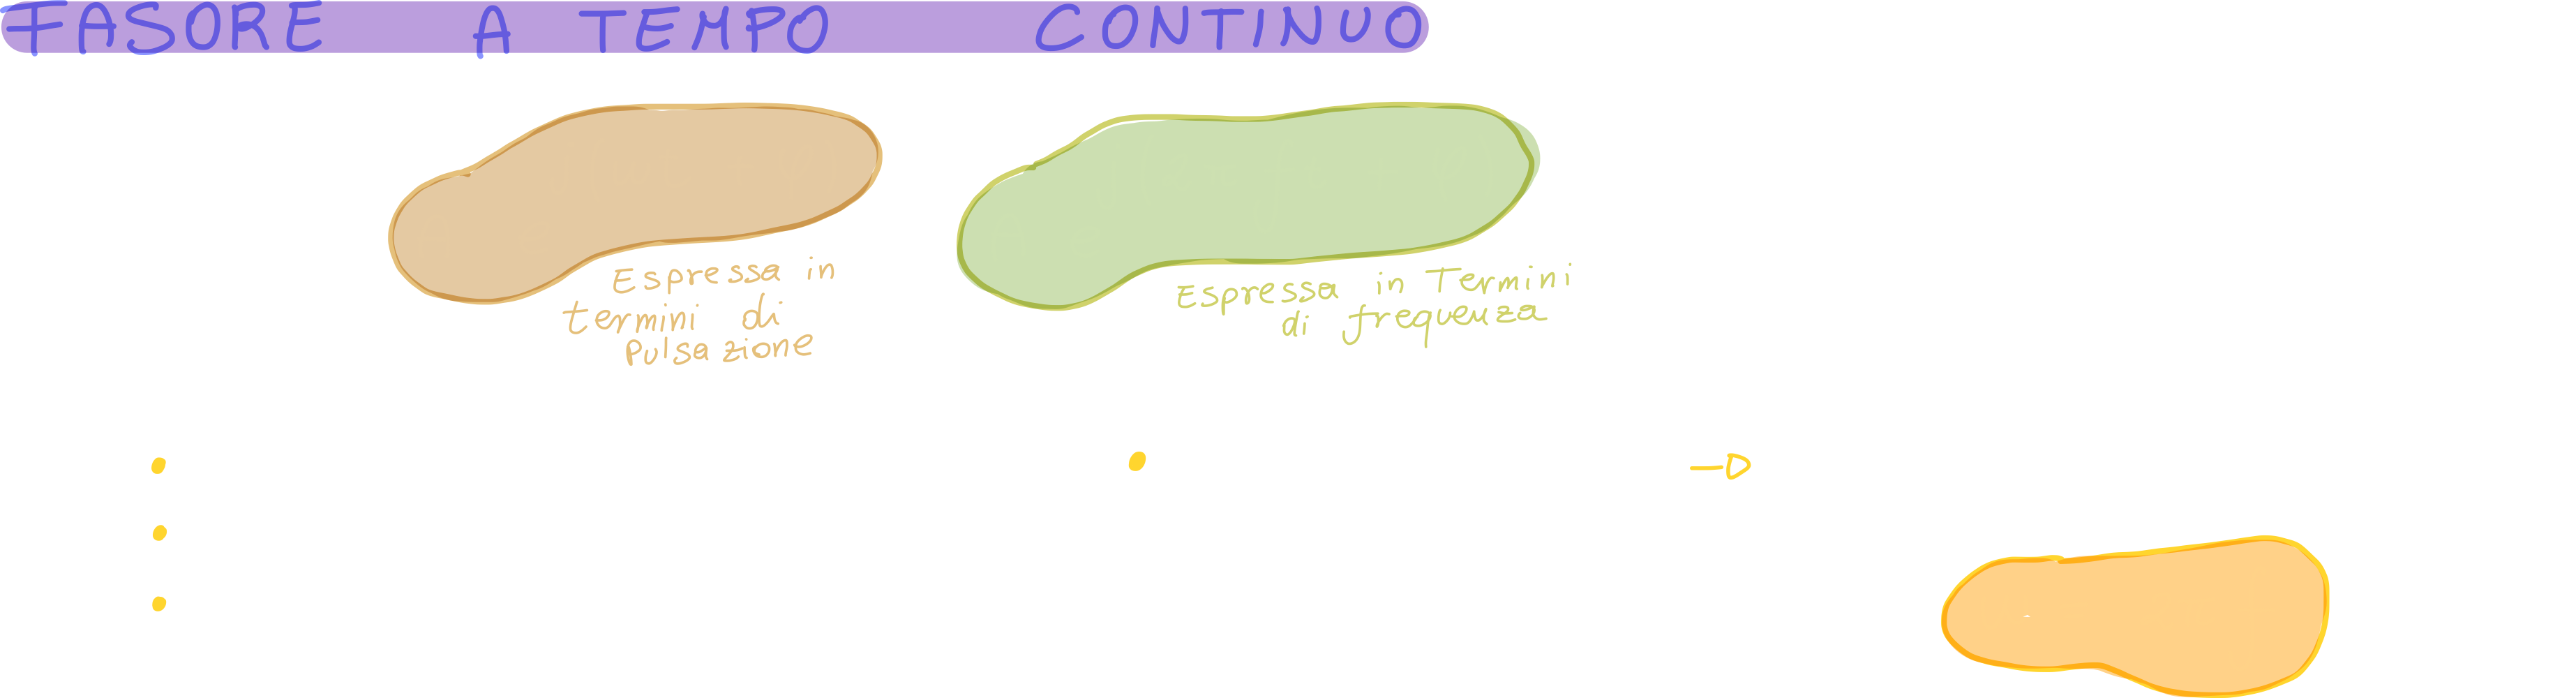 FASORE A TEMPO CONTINUO
Espressa in
termini di
Pulsazione
Espressa in Termini
di frequenza